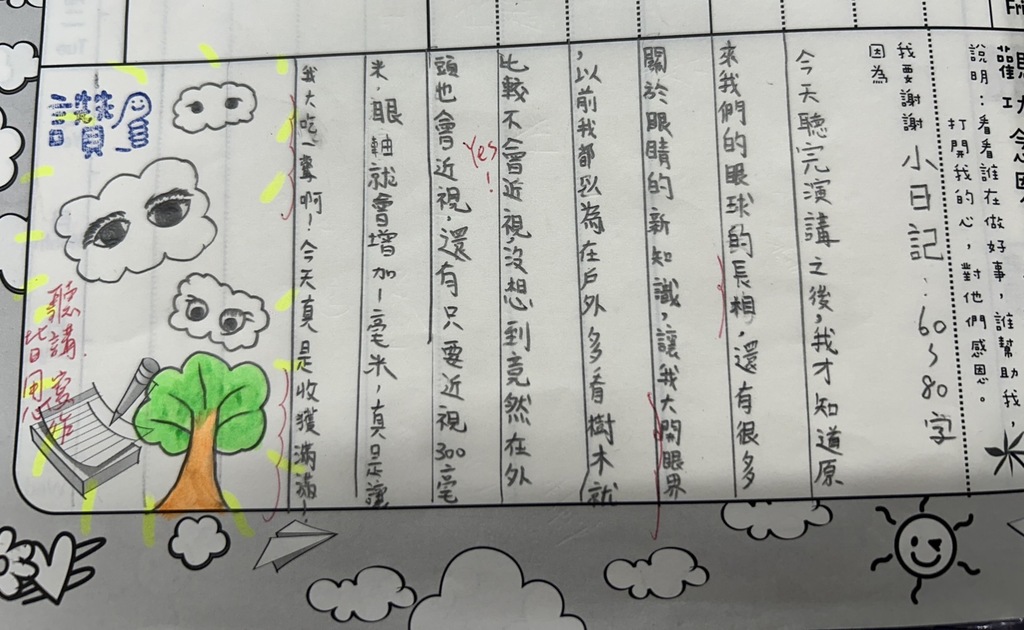 說明：看看誰在做好事，誰幫助我，
打開我的心，對他們感恩。
我要謝謝
因為
小日記：60~80字
今天聽完演講之後，我才知道原
來我們的眼球的長相，還有很多
關於眼睛的新知識，讓我大開眼界
，以前我都以為在戶外多看樹木就
比較不會近視，沒想到竟然在外
Yes!
頭也會近視，還有只要近視300毫
米，眼軸就會增加1毫米，真是讓
我大吃一驚啊！今天真是收獲滿滿！
讚
聽講寫作
皆用心